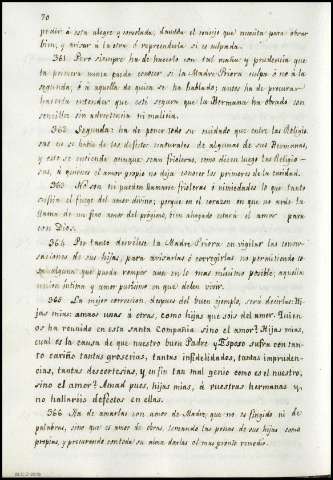 70
pedir á esta alegre y consolada, dandola el consejo que necesita para obrar
bien, y avisar á la otra ó reprenderla si es culpada.
361. Pero siempre ha de hacerlo con tal maña y prudencia que
la primera nunca pueda conocer si la Madre Priora culpa ó no á la
segunda, ó á aquella de quien se ha hablado; antes ha de procurar
hacerla entender que está segura que la Hermana ha obrado con
sencillez sin advertencia ni malicia.
362. Segunda: ha de poner todo su cuidado que entre las Religio
sas no se hable de los defectos naturales de algunas de sus Hermanas,
y esto se entiende aunque sean frioleras, como dicen luego las Religio-
sas, á quienes el amor propio no deja conocer los primores de la caridad.
363. No son ni pueden llamarse frioleras ó nimiedades lo que tanto
enfria el fuego del amor divino; porque en el corazon en que no arde la
llama de un fino amor del prógimo, bien ahogado estará el amor para
con Dios.
364. Por tanto desvélese la Madre Priora en vigilar las conver-
saciones de sus hijas, para avisarlas ó corregirlas no permitiendo co-
sa alguna que pueda romper aun en lo mas minimo posible, aquella
union intima y amor purisimo en que deben vivir.
365. La mejor correccion, despues del buen ejemplo, será decirlas: Hi
jas mias: amaos unas á otras, como hijas que sois del amor. Quien
os ha reunido en esta santa Compañia sino el amor? Hijas mias,
cual es la causa de que nuestro buen Padre y Esposo sufra con tan-
to cariño tantas groserias, tantas infidelidades, tantas impruden-
cias, tantas descortesias, y en fin tan mal genio como es el nuestro,
sino el amor? Amad pues, hijas mias, á vuestras hermanas y
no hallaréis defectos en ellas.
366. Ha de amarlas con amor de Madre, que no es fingido ni de
palabras, sino que es amor de obras, sintiendo las penas de sus hijas como
propias, y procurando con toda su alma darlas el mas pronto remedio.